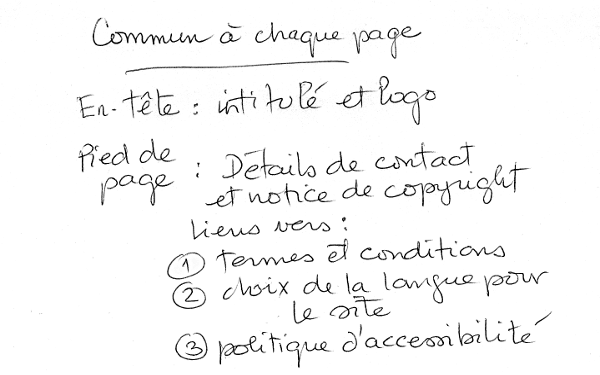 Commun à chaque page
En-tête : intitulé et logo
Pied de page : Détails de contact
et notice de copyright
liens vers :
① termes et conditions
② choix de la langue pour
le site
③ politique d'accessibilité